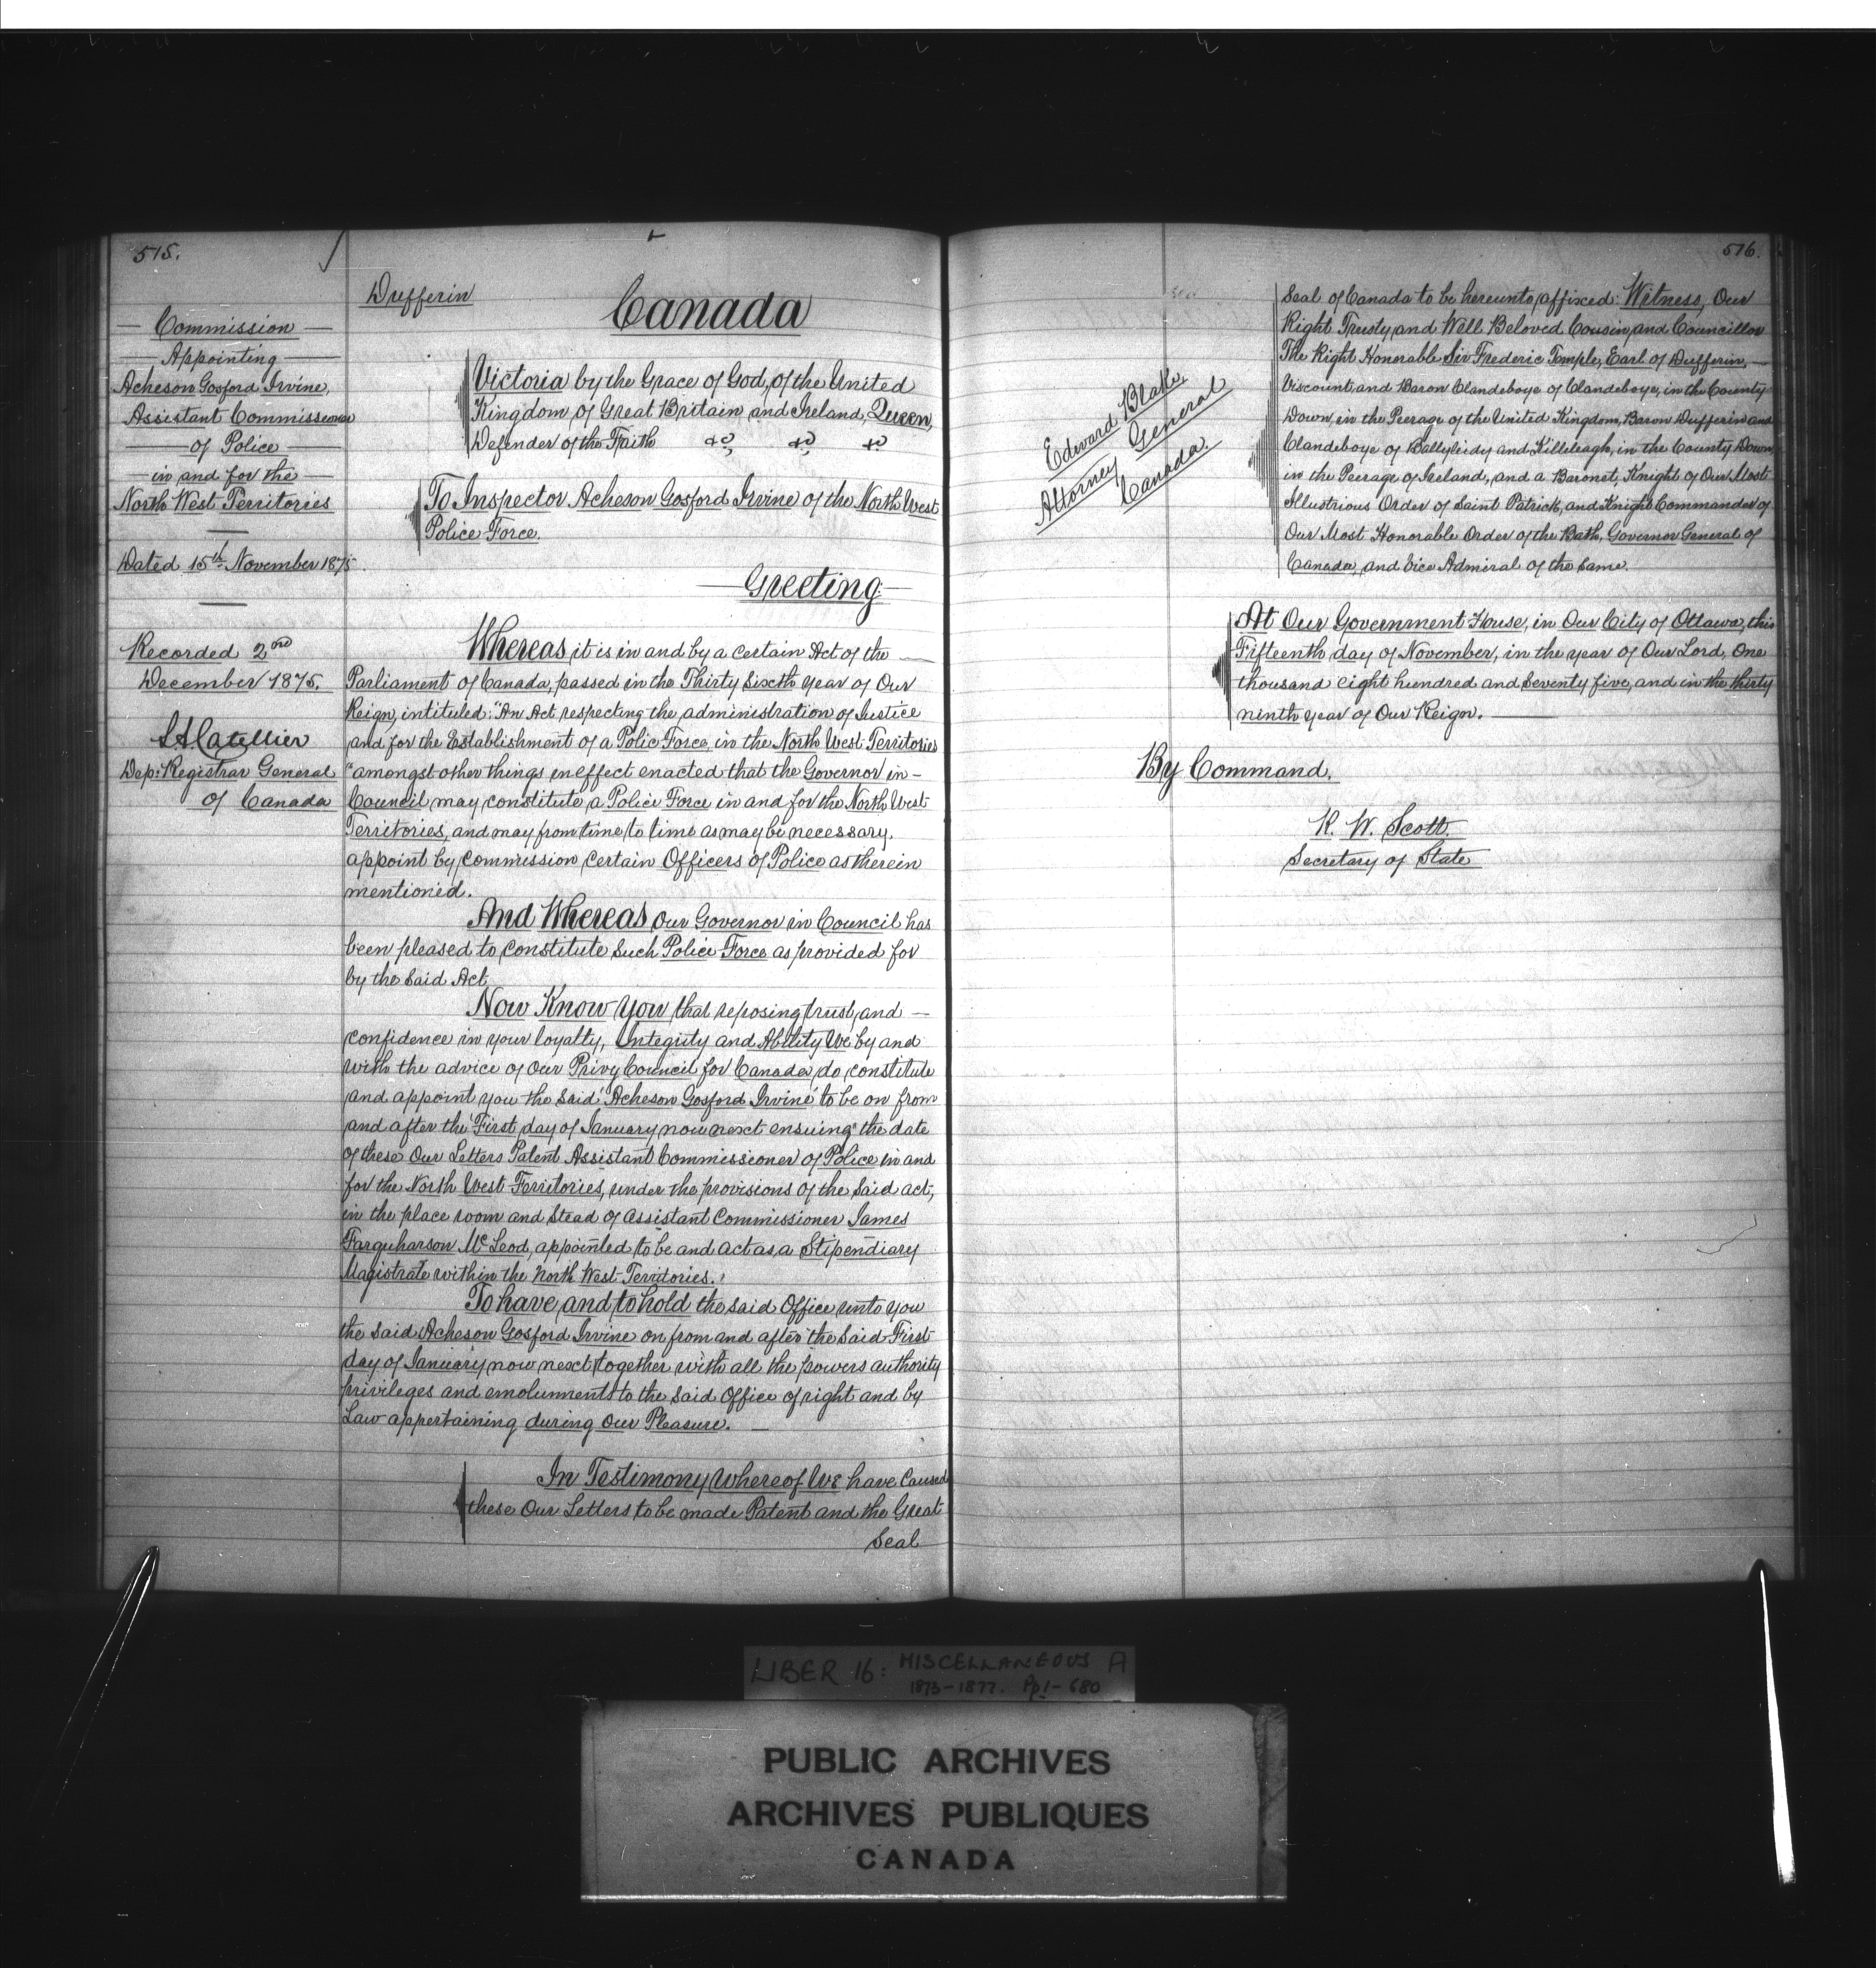 515.
Commission
Appointing
Acheson Gosford Irvine,
Assistant Commissioner
of Police
in and for the
North West Territories
Dated 15th November 1875
Recorded 2nd
December 1875.
L A Catellier
Dep: Registrar General
of Canada
Dufferin
Canada
Victoria by the Grace of God, of the United
Kingdom of Great Britain and Ireland, Queen,
Defender of the Faith &c, &c, &c
To Inspector Acheson Gosford Irvine of the North West
Police Force.
Greeting
Whereas it is in and by a certain Act of the
Parliament of Canada, passed in the Thirty Sixth Year of Our
Reign, intituled: "An Act respecting the administration of Justice
and for the Establishment of a Polic Force in the North West Territories
"amongst other things in effect enacted that the Governor in-
Council may constitute a Police Force in and for the North West
Territories, and may from time to time as may be necessary.
appoint by commission certain Officers of Police as therein
mentioned.
And Whereas Our Governor in Council has
been pleased to constitute such Police Force as provided for
by the said Act
Now Know You that reposing trust and
confidence in your loyalty, Integrity and Ability We by and
with the advice of Our Privy Council for Canada do constitute
and appoint you the said Acheson Gosford Irvine to be on from
and after the First day of January now next ensuing the date
of these Our Letters Patent Assistant Commissioner of Police in and
for the North West Territories, under the provisions of the said act,
in the place room and stead of Assistant Commissioner James
Farquharson McLeod, appointed to be and act as a Stipendiary
Magistrate within the North West Territories.
To have and to hold the said Office unto you
the said Acheson Gosford Irvine on from and after the said First
day of January now next together with all the powers authority
privileges and emoluments to the said Office of right and by
Law appertaining during Our Pleasure.
In Testimony Whereof We have Caused
these Our Letters to be made Patent and the Great
Seal
516.
Edward Blake,
Attorney General
Canada.
Seal of Canada to be hereunto affixed: Witness, Our
Right Trusty and Well Beloved Cousin and Councillor
The Right Honorable Sir Frederic Temple, Earl of Dufferin,
Viscount and Baron Clandeboye of Clandeboye, in the County
Down, in the Peerage of the United Kingdom, Baron Dufferin and
Clandeboye of Ballyleidy and Killeleagh, in the County Down,
in the Peerage of Ireland, and a Baronet, Knight of Our Most
Illustrious Order of Saint Patrick, and Knight Commander of
Our Most Honorable Order of the Bath, Governor General of
Canada, and Vice Admiral of the same.
At Our Government House, in Our City of Ottawa, this
Fifteenth day of November, in the year of Our Lord, One
thousand eight hundred and seventy five, and in the thirty
ninth year of Our Reign.
By Command.
R. W. Scott.
Secretary of State
LIBER 16: MISCELLANEOUS A
1873-1877. Pp 1-680
PUBLIC ARCHIVES
ARCHIVES PUBLIQUES
CANADA